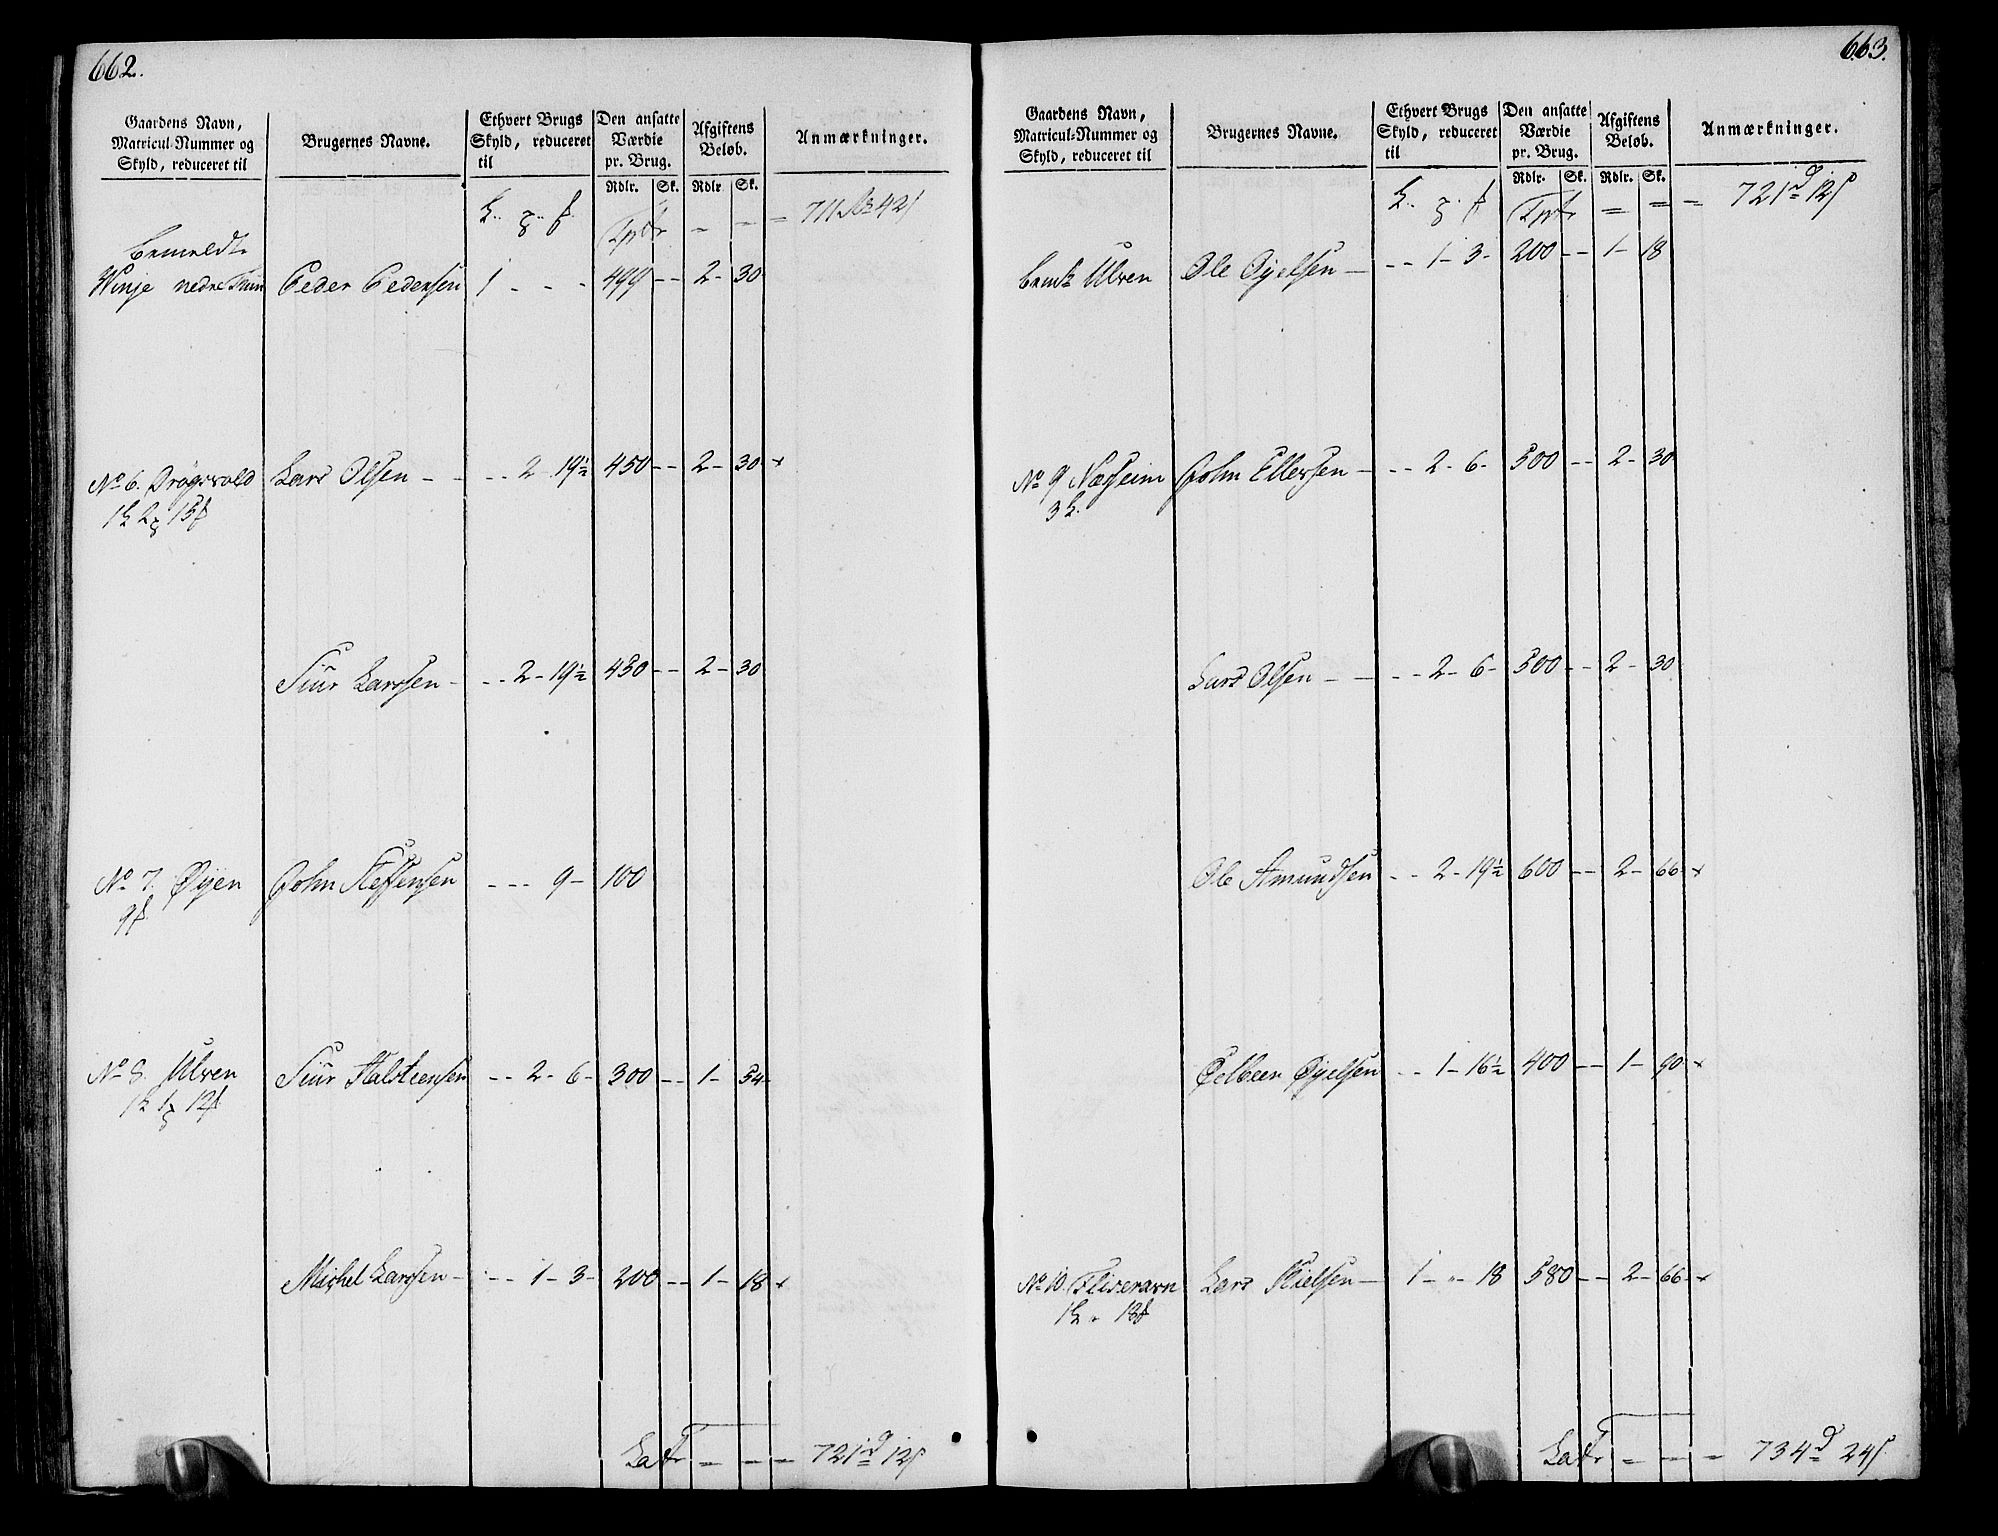 662.
Gaardens Navn, Matricul-Nummer og Skyld, reduceret til
Brugernes Navne.
Ethvert Brugs Skyld, reduceret til
Den ansatte Værdie pr. Brug.
Afgiftens Beløb.
Anmærkninger.
Rdlr. Sk. Rdlr. Sk.
Tpt - - = 711 42
bemeldte
Winje nedre Peder Pedersen 1 - - - 499 -- 2 - 30
No 6. Drøgsvold Lars Olsen - - -- 2 - 19½ 450 -- 2 - 30 +
1 2 15
Siur Larssen - -- 2 - 19½ 450 -- 2 - 30
No 7. Øyen John Steffensen - - - 9 - 100
9
No 8. Ulven Siur Halsteensen -- 2 - 6 - 300 -- 1 - 54
1 1 12
Michel Larssen - -- 1 - 3 - 200 -- 1 - 18 +
Lat = - = 721 12
663.
Gaardens Navn, Matricul-Nummer og Skyld, reduceret til
Brugernes Navne.
Ethvert Brugs Skyld, reduceret til
Den ansatte Værdie pr. Brug.
Afgiftens Beløb.
Anmærkninger.
Rdlr. Sk. Rdlr. Sk.
Tpt = = = 721 12
Ulven Ole Øyelsen - -- 1 - 3 - 200 -- 1 - 18
No 9 Næsheim John Ellefsen - -- 2 - 6 - 500 -- 2 - 30
3
Lars Olsen - - -- 2 - 6 - 500 -- 2 - 30
Ole Amundsen -- 2 - 19½ 600 -- 2 - 66 +
Øyelsen -- 1 - 16½ 400 -- 1 - 90 +
No 10. Lars Nielsen - 1 - - 18 580 -- 2 - 66 +
1 - 18
Lat = - = 734 24